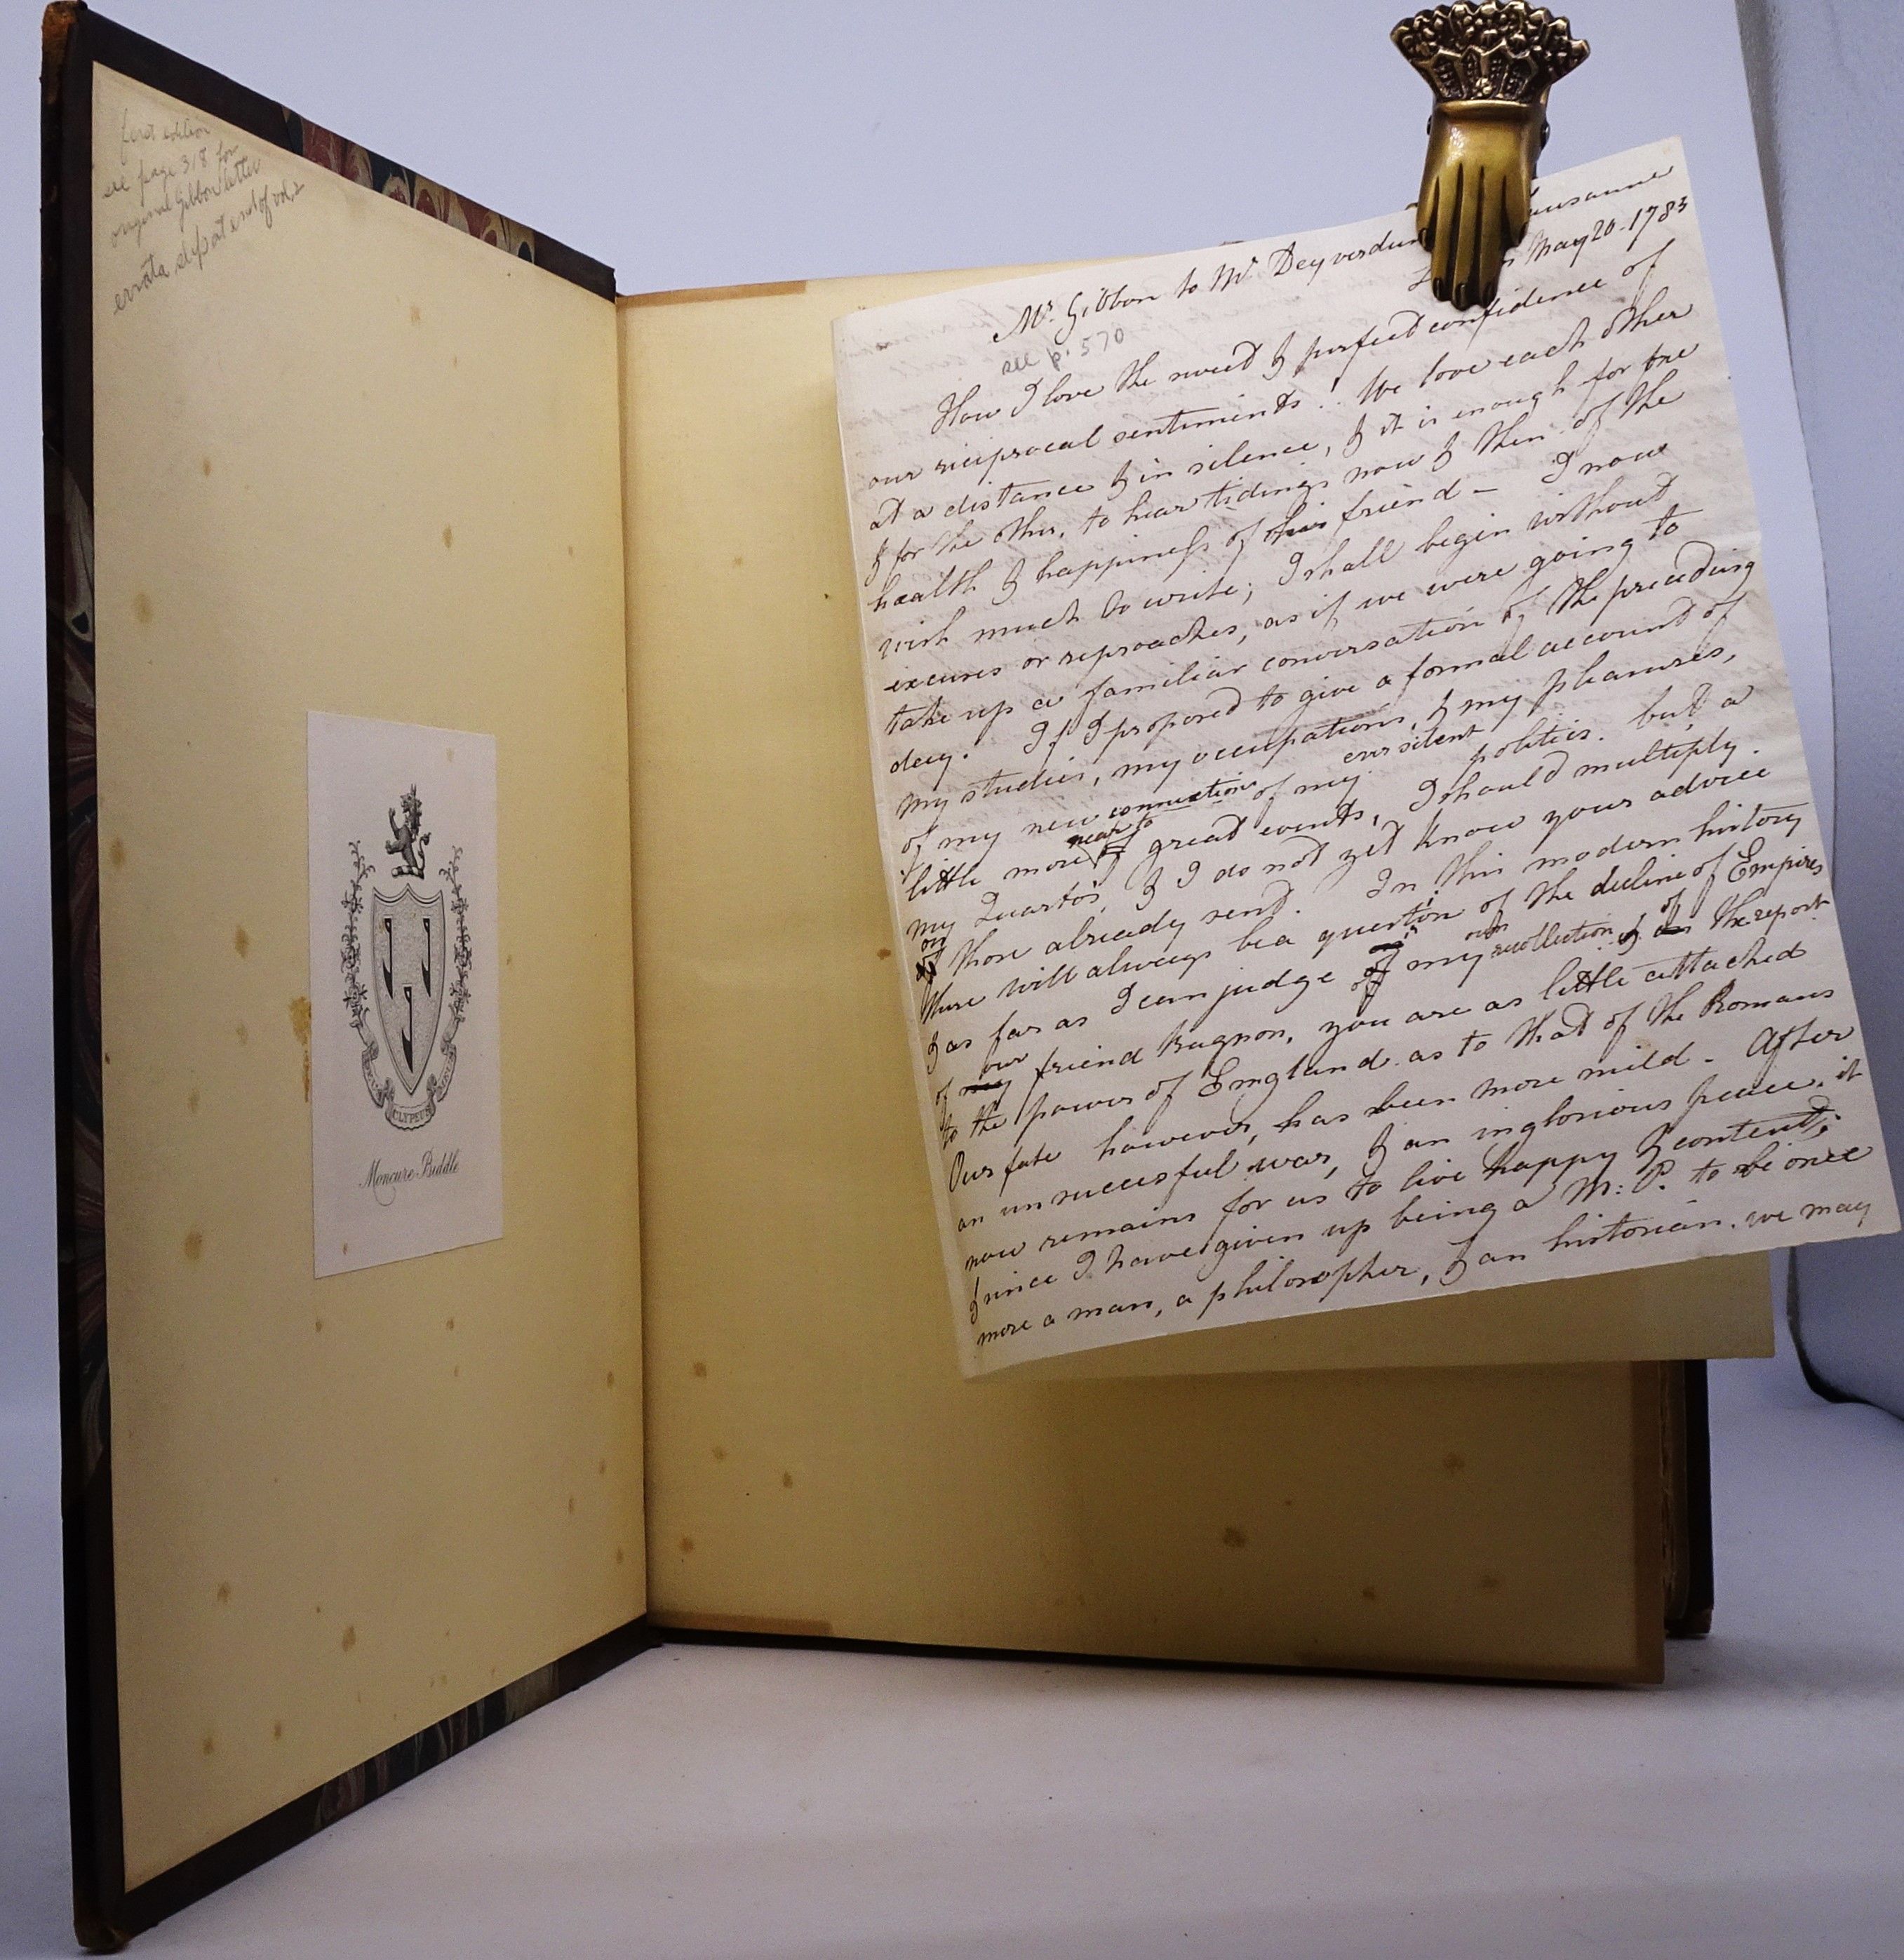 first edition
see page 318 for
original Gibbon letter
errata slip at end of vol 2
CLYPEUS
Moncure Biddle
Mr. Gibbon to Mr Deyverdun
May 20. 1783
see p. 570
How I love the sweet & perfect confidence of
our reciprocal sentiments! We love each other
at a distance & in silence, & it is enough for one
& for the other, to hear tidings now & then of the
health & happiness of his friend – I now
wish much to write; I shall begin without
excuses or reproaches, as if we were going to
take up a familiar conversation of the preceding
day. If I proposed to give a formal account of
my studies, my occupations, & my pleasures,
of my new connections of my politics. but a
little more near to great events, I should multiply.
my Quartos, & I do not yet know your advice
on those already send. In this modern history
there will always be a question of the decline of Empires
& as far as I can judge my own recollection & of the report
of my our friend Bugnon, you are as little attached
to the power of England as to that of the Romans
Our fate however, has been more mild – After
an unsuccesful war, & an inglorious peace, it
now remains for us to live happy & content;
& since I have given up being a M: P. to be once
more a man, a philosopher, & an historian. we may